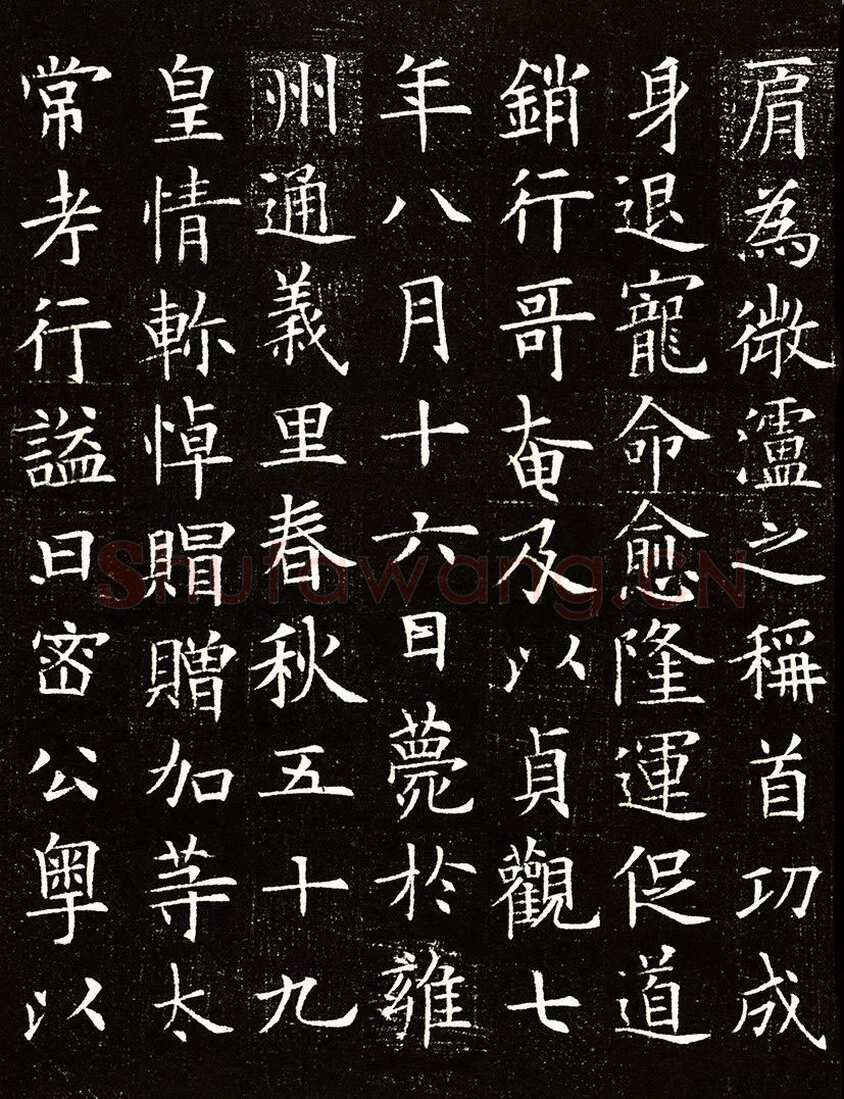 肩為微瀘之稱首功成
身退寵命愈隆運促道
銷行哥奄及以貞觀七
年八月十六日薨於雍
州通義里春秋五十九
皇情軫悼賵贈加等太
常考行謚曰密公粤以
Shufawang.CN